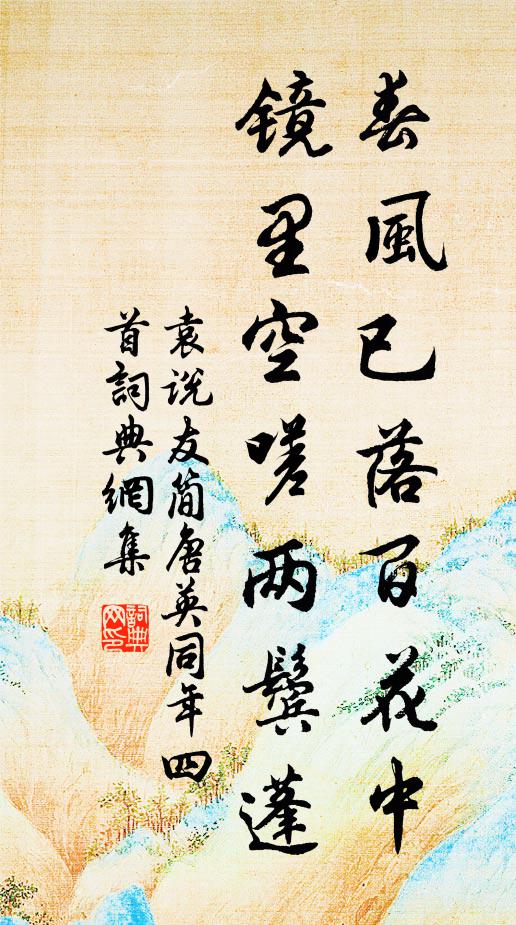 春風已落百花中
镜里空嗟两鬓蓬
袁说友简唐英同年四
首詞典網集
詞典